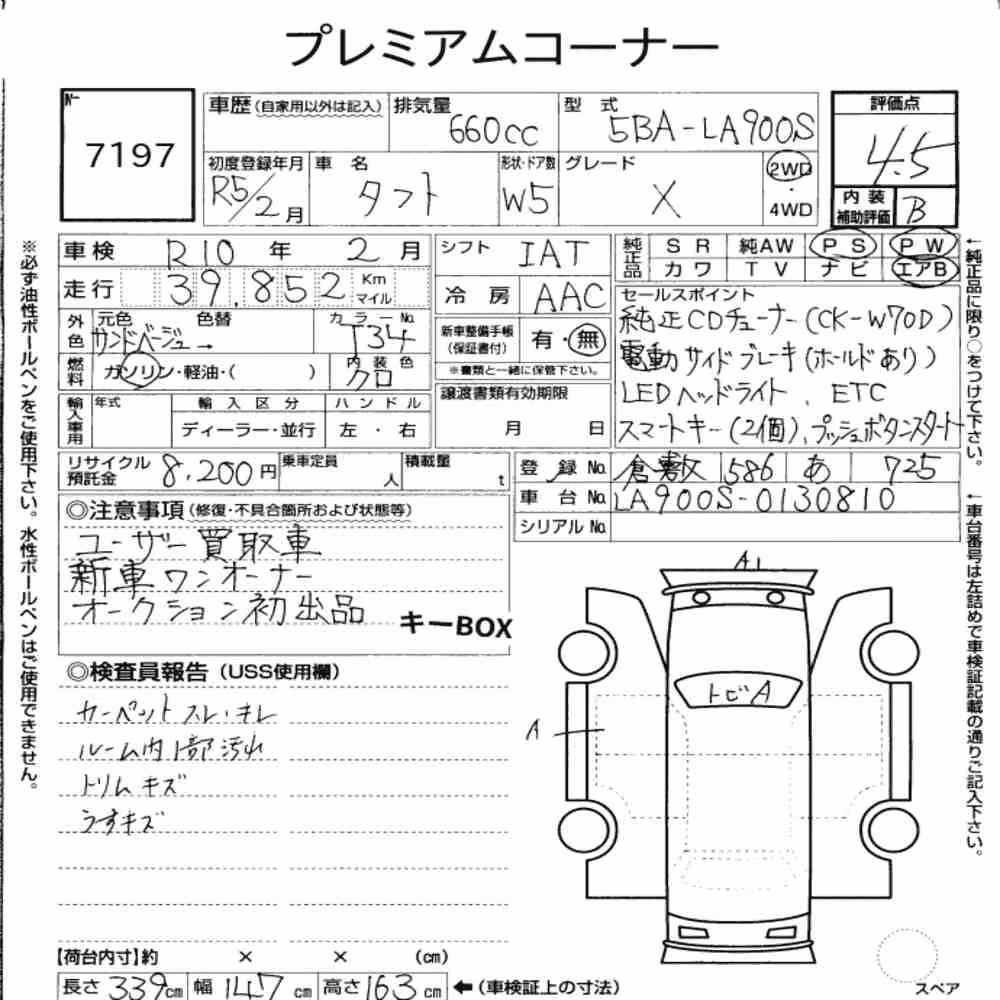 プレミアムコーナー
№
7197
車歴(自家用以外は記入)
排気量
660cc
型 式
5BA-LA900S
評価点
4.5
初度登録年月
R5/2月
車 名
タフト
形状・ドア数
W5
グレード
X
2WD
・
4WD
内 装
補助評価
B
車検 R10 年 2 月
シフト IAT
純正品
S R 純AW P S P W
カワ T V ナビ エアB
走行 39,852 Km
マイル
冷 房 AAC
セールスポイント
純正CDチューナー(CK-W70D)
電動サイドブレーキ(ホールドあり)
LEDヘッドライト、ETC
スマートキー(2個)、プッシュボタンスタート
外色
元色 色替
サンドベージュ→
カラーNo.
T34
新車整備手帳
(保証書付)
有・無
※書類と一緒に保管下さい。
燃料
ガソリン・軽油・( )
内装色
クロ
譲渡書類有効期限
月 日
輸入車用
年式
輸 入 区 分
ハ ン ド ル
ディーラー・並行
左 ・ 右
リサイクル
預託金
8,200円
乗車定員
人
積載量
t
登 録 No. 倉敷 586 あ 725
車 台 No. LA900S-0130810
シリアル No.
◎注意事項(修復・不具合箇所および状態等)
ユーザー買取車
新車ワンオーナー
オークション初出品
キーBOX
◎検査員報告(USS使用欄)
カーペットスレ・キレ
ルーム内1部汚れ
トリムキズ
うすキズ
A1
トビA
A
【荷台内寸】約 × × (cm)
長さ 339cm 幅 147 cm 高さ 163 cm ←(車検証上の寸法)
スペア
※必ず油性ボールペンをご使用下さい。水性ボールペンはご使用できません。
←純正品に限り○をつけて下さい。
←車台番号は左詰めで車検証記載の通りご記入下さい。